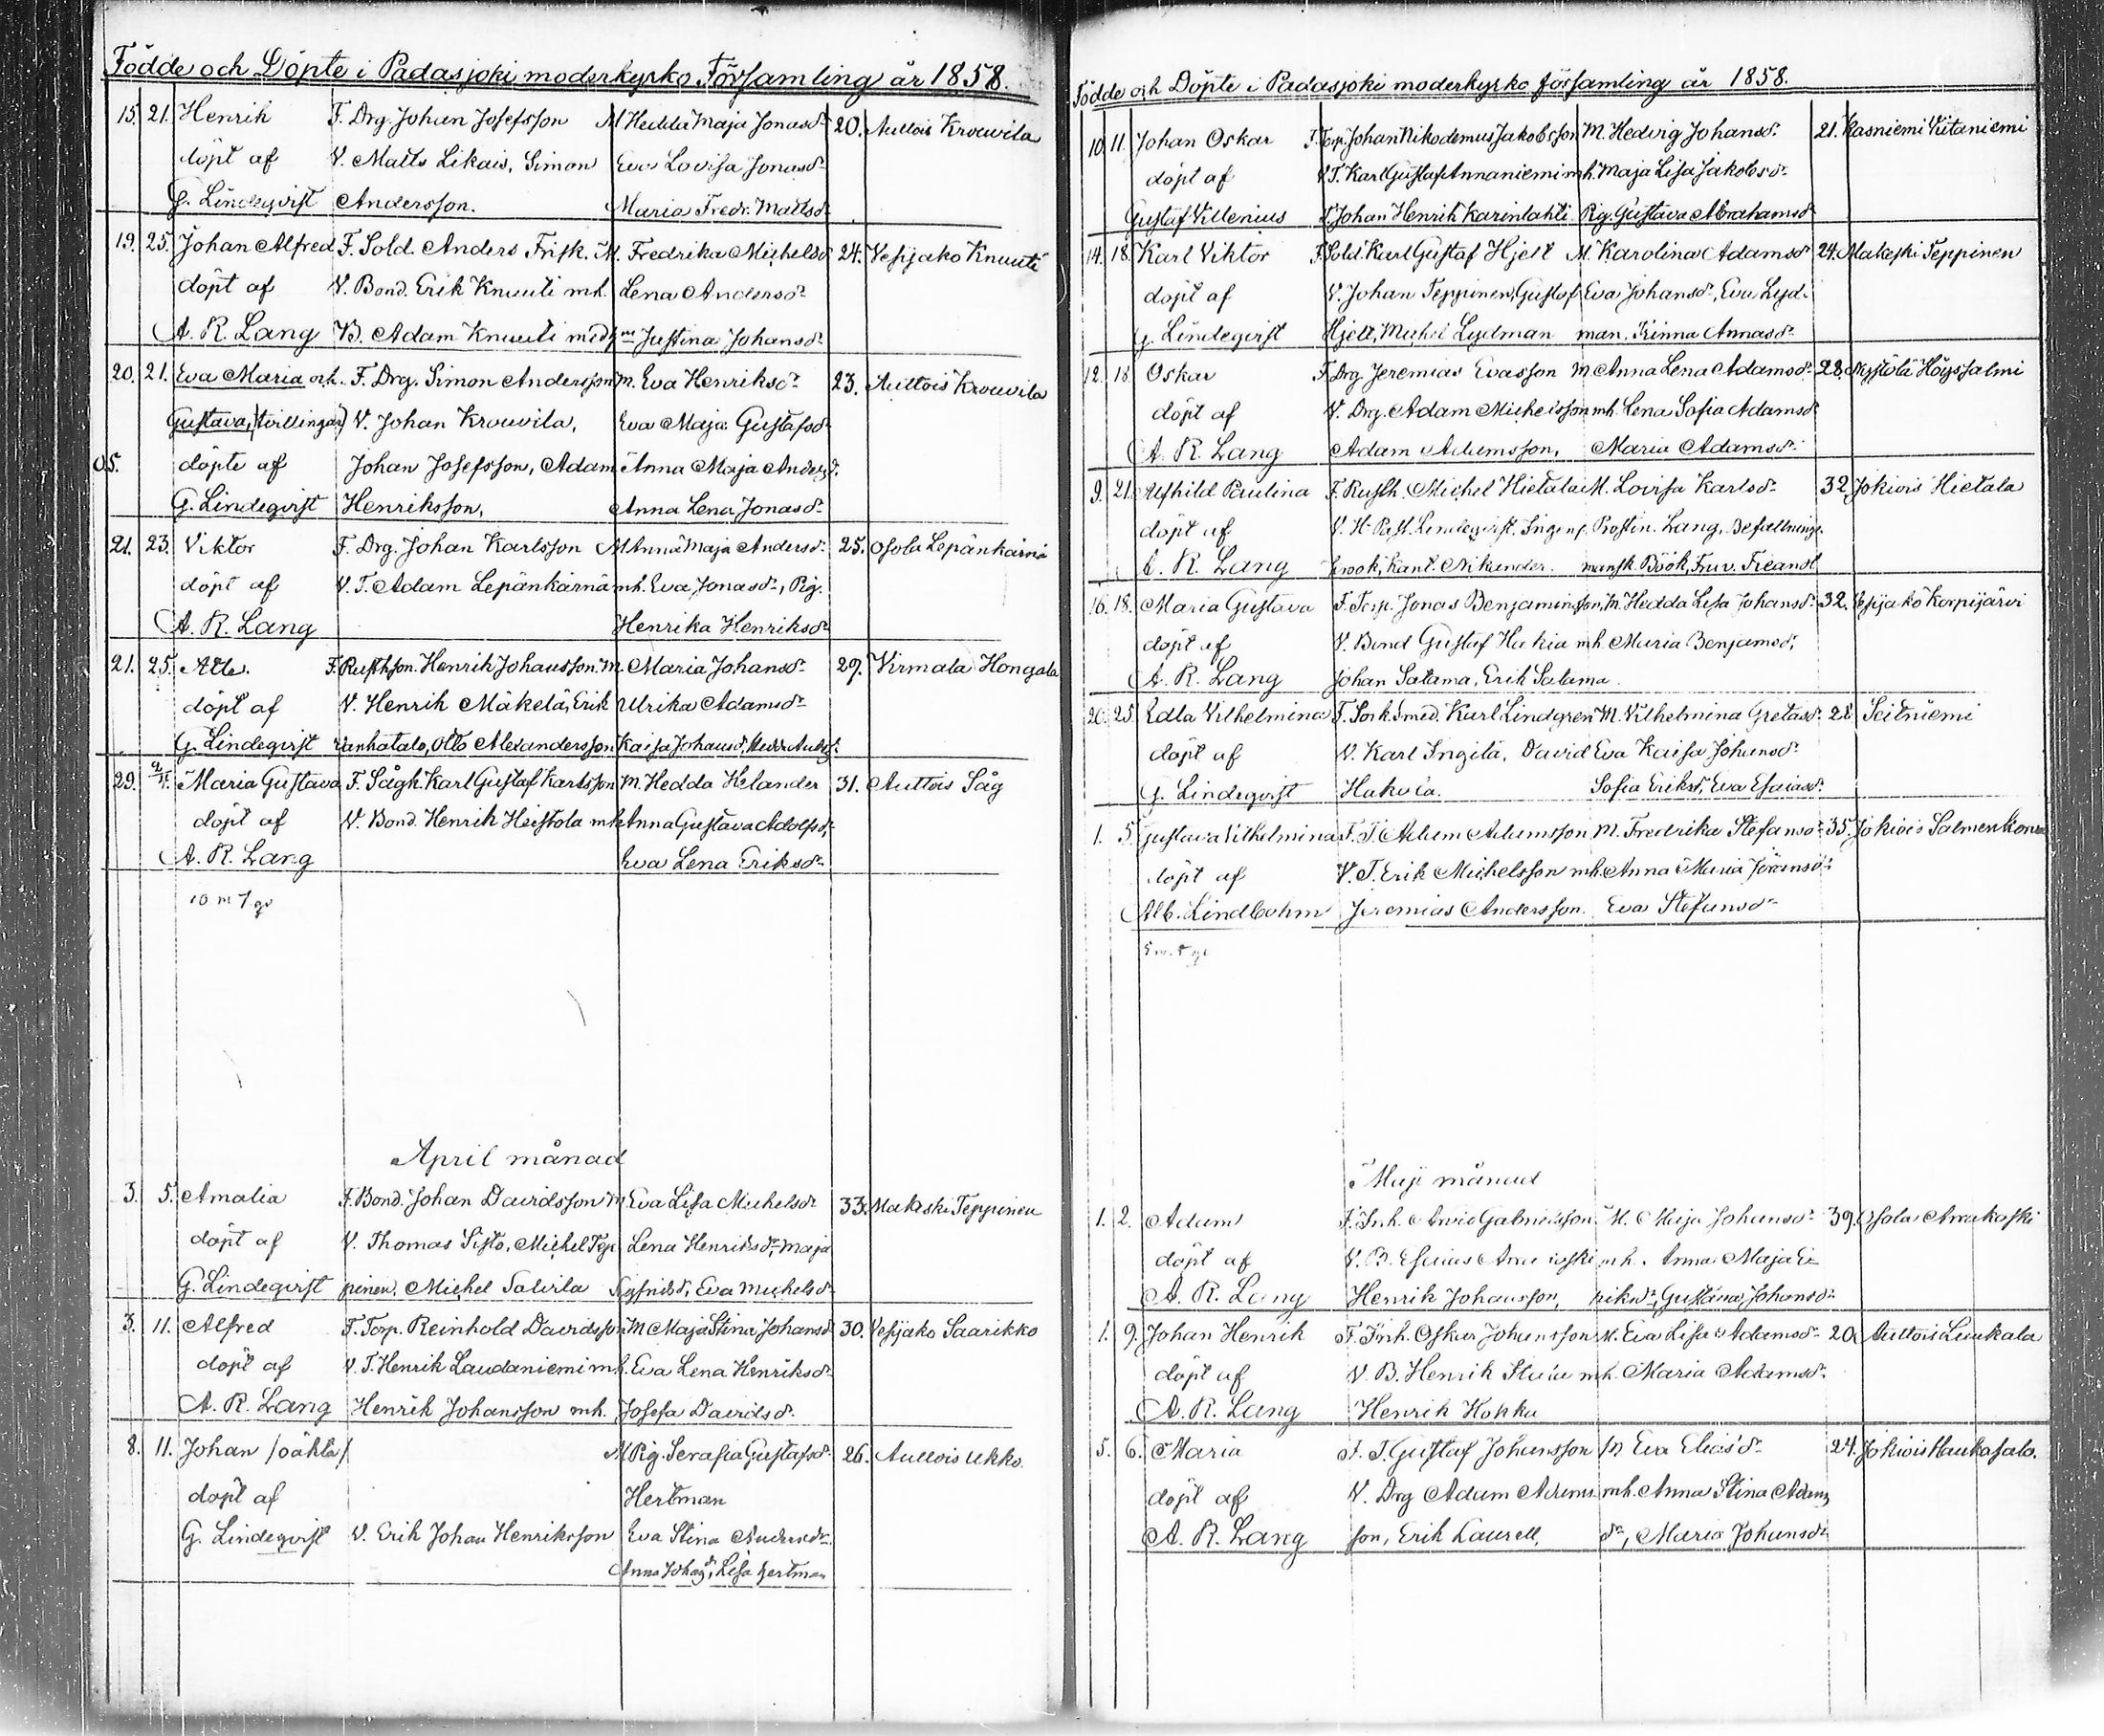 Födde och Döpte i Padasjoki moderkyrko Församling år 1858.
15. 21. Henrik F. Drg. Johan Josefsson M. Hedda Maja Jonasdr 20. Auttois Krouvila
döpt af V. Matts Likais, Simon Eva Lovisa Jonasdr
G. Lindeqvist Andersson. Maria Fredr. Mattsdr
19. 25. Johan Alfred F. Sold. Anders Frisk. M. Fredrika Michelsdr 24. Vesijako Knuuti
döpt af V. Bond. Erik Knuuti mh. Lena Andersdr
A. R. Lang B. Adam Knuuti med hn Justina Johansdr
20. 21. Eva Maria och F. Drg. Simon Andersson M. Eva Henriksdr 23. Auttois Krouvila
Gustava, (tvillingar) V. Johan Krouvila, Eva Maja Gustafsdr
05. döpte af Johan Josefsson, Adam Anna Maja Andersd.
G. Lindeqvist Henriksson, Anna Lena Jonasdr
21. 23. Viktor F. Drg. Johan Karlsson M Anna Maja Andersdr 25. Osola Lepänkärnä
döpt af V. T. Adam Lepänkärnä mh. Eva Jonasdr, Pig.
A. R. Lang Henrika Henriksdr
21. 25. F. Rusthson. Henrik Johansson. M. Maria Johansdr 29. Virmala Hongala
döpt af V. Henrik Mäkelä, Erik Ulrika Adamsdr
G. Lindeqvist Otto Alexandersson Kaisa Johansd,
29. Maria Gustava F. Sågk. Karl Gustaf Karlsson M. Hedda Helander 31. Auttois Såg
döpt af V. Bond. Henrik Heistola mh Anna Gustava Adolfsd.
A. R. Lang Eva Lena Eriksdr
10 m 7 qv
April månad
3. 5. Amalia F. Bond. Johan Davidsson M. Eva Lisa Michelsdr 33. Maakeski Teppinen
döpt af V. Thomas Sisto, Michel Tep Lena Henriksdr, Maja
G. Lindeqvist pinen, Michel Salvila Sigfridsd, Eva Michelsdr
3. 11. Alfred F. Torp. Reinhold Davidsson M Maja Stina Johansd 30. Vesijako Saarikko
döpt af V. T. Henrik Laudaniemi mh. Eva Lena Henriksdr
A. R. Lang Henrik Johansson mh. Josefa Davidsd.
8. 11. Johan /oäkta/ M Pig. Serafia Gustafsdr 26. Auttois Ukko.
döpt af Hertman
G. Lindeqvist V. Erik Johan Henriksson Eva Stina Andersdr.
Anna Lisa Hertman
Födde och Döpte i Padasjoki moderkyrko församling år 1858.
10. 11. Johan Oskar F. Torp. Johan Nikodemus Jakobsson M. Hedvig Johansd. 21. Kasniemi Kiitaniemi
döpt af V. T. Karl Gustaf Annaniemi mh. Maja Lisa Jakobsdr
Gustaf Villenius Johan Henrik Karinlahti Pig. Gustava Abrahamsd
14. 18. Karl Viktor F. Sold. Karl Gustaf Hjelt M. Karolina Adamsdr 24. Maakeski Teppinen
döpt af V. Johan Teppinen, Gustaf Eva Johansdr, Eva Lyd.
G. Lindeqvist Hjelt, Michel Lydman man. Annasdr
12. 18. Oskar F. Drg. Jeremias Evasson M Anna Lena Adamsdr 28. Nyystölä Höyssalmi
döpt af V. Drg. Adam Michelsson mh. Lena Sofia Adamsd
A. R. Lang Adam Adamsson, Maria Adamsdr
9. 21. Alfhild Paulina F. Rusth. Michel Hietala M. Lovisa Karlsdr 32. Jokiois Hietala
döpt af V. H. Past. Lindeqvist. Prostin. Lang, Befallnings
A. R. Lang Krook, Kant. Nikander. mansk. Böök, Fruv. Ticand
16. 18. Maria Gustava F. Torp. Jonas Benjaminsson, M. Hedda Lisa Johansdr 32. Vesijako Korpijärvi
döpt af V. Bond Gustaf Hakia mh. Maria Benjamsd,
A. R. Lang Johan Satama, Erik Salama.
20. 25. Edla Vilhelmina F. Sock. smed. Karl Lindgren M. Vilhelmina Gretasd. 28. Seitniemi
döpt af V. Karl Ingilä, David Eva Kaisa Johansdr
G. Lindeqvist Hakola. Sofia Eriksd, Eva Esaiasdr
1. 5. Gustava Vilhelmina F. T. Adam Adamsson M. Fredrika Stefansdr 35. Jokiois Salmen
döpt af V. T. Erik Michelsson mh. Anna Maria Göransdr
Alb. Lindbohm Jeremias Andersson. Eva Stefansdr
5 m. 5 qv
Maji månad
1. 2. Adam F. Inh. Gabrielsson. M. Maja Johansdr 39. Osola Arrakoski
döpt af V. B. Esaias Arrakoski mh. Anna Maja E
A. R. Lang Henrik Johansson, riksdr, Gustava Johansdr
1. 9. Johan Henrik F. Inh. Oskar Johansson M. Eva Lisa Adamsdr 20. Auttois Luukala
döpt af V. B. Henrik mh. Maria Adamsdr
A. R. Lang Henrik Kokku
5. 6. Maria F. T. Gustaf Johansson M Eva Eliasdr 24. Jokiois Haukasalo.
döpt af V. Drg Adam Adams mh. Anna Stina Adams
A. R. Lang son, Erik Laurell, dr, Maria Johansdr